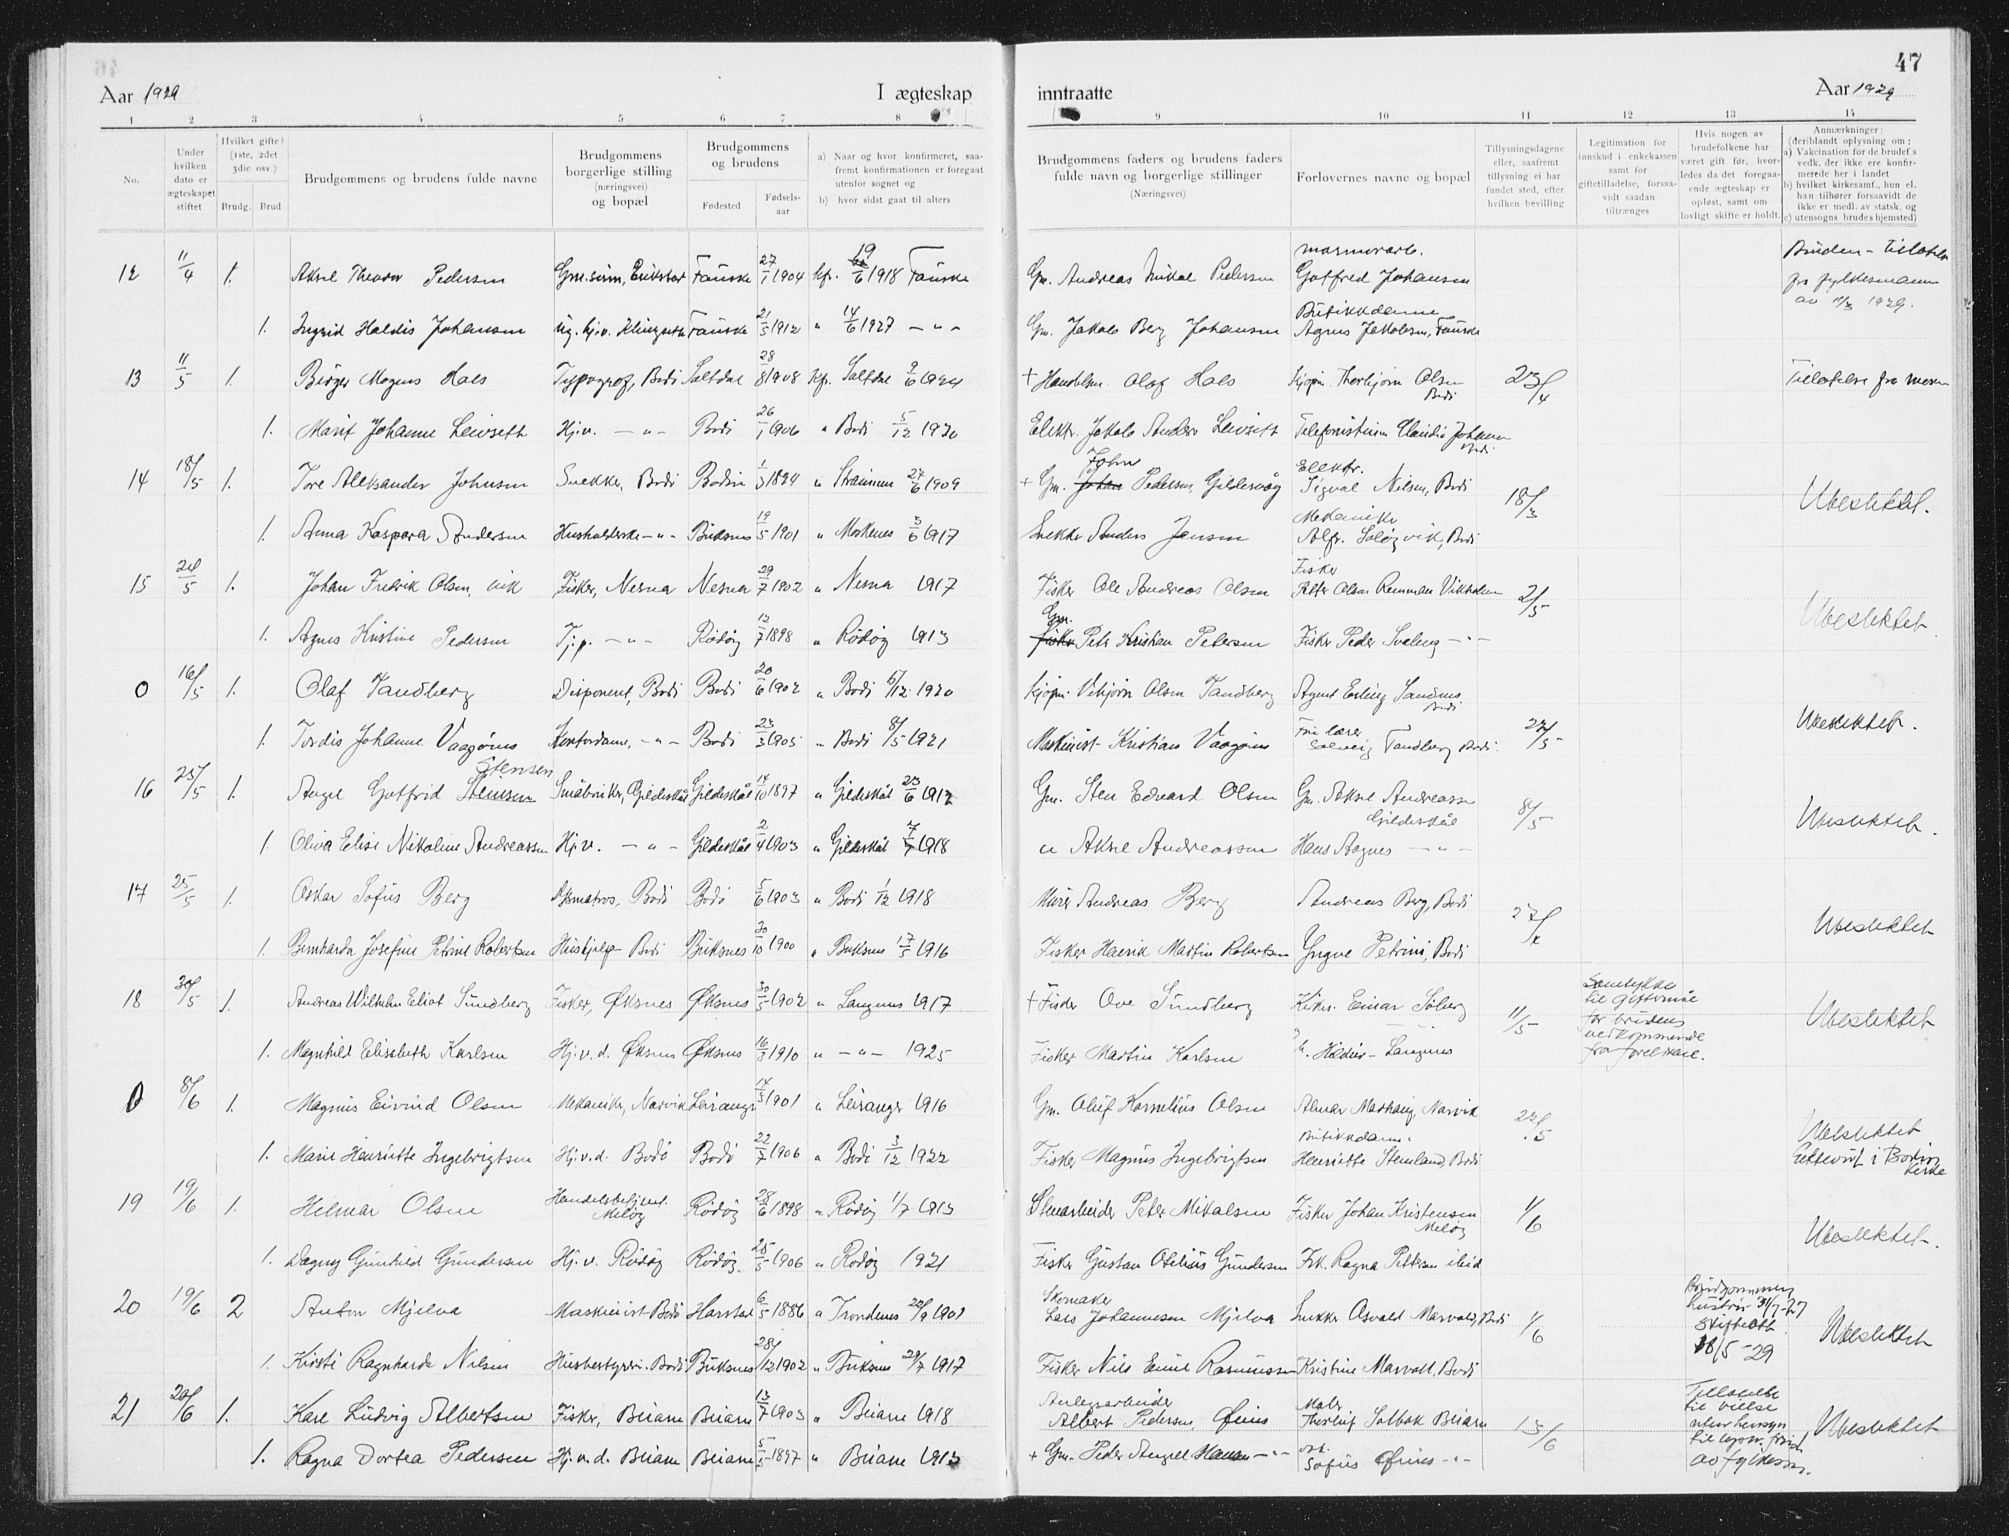 47
Aar 1929 I ægteskap inntraatte Aar 1929
1 2 3 4 5 6 7 8 9 10 11 12 13 14
No.
Under hvilken dato er ægteskapet stiftet
Hvilket gifte? (1ste, 2det 3die osv.)
Brudg. Brud
Brudgommens og brudens fulde navne
Brudgommens borgerlige stilling (næringsvei) og bopæl
Brudgommens og brudens
Fødested Fødsels-aar
a) Naar og hvor konfirmeret, saafremt konfirmationen er foregaat utenfor sognet og
b) hvor sidst gaat til alters
Brudgommens faders og brudens faders fulde navn og borgerlige stillinger (Næringsvei)
Forlovernes navne og bopæl
Tillysningsdagene eller, saafremt tillysning ei har fundet sted, efter hvilken bevilling
Legitimation for innskud i enkekassen samt for giftetilladelse, forsaavidt saadan tiltrænges
Hvis nogen av brudefolkene har været gift før, hvorledes da det foregaaende ægteskap er opløst, samt om lovligt skifte er holdt.
Anmærkninger: (deriblandt oplysning om:
a) Vakcination for de brudef.s vedk. der ikke ere konfirmerede her i landet
b) hvilket kirkesamf., hun el. han tilhører forsaavidt de ikke er medl. av statsk. og
c) utensogns brudes hjemsted)
12 11/4 1. Aksel Theodor Pedersen Fauske 27/1 1904 kf. 19/6 1918 Fauske Gm. Andreas Mikal Pedersen Gotfred Johansen Bruden - Tillatelse fra fylkesmannen av 11/3 1929.
1. Ingrid Haldis Johansen Fauske 21/5 1912 " 14/6 1927 - " - Gm. Jakob Berg Johansen Butikkdame Agnes Jakobsen, Fauske
13 11/5 1. Birger Mogens Hals Typograf, Bodö Saltdal 28/8 1908 kf. Saltdal 9/6 1924 + Handelsm. Olaf Hals Kjøpm. Thorbjørn Olsen Bodö 23/4
1. Marit Johanne Leivseth Hj.v. - " - Bodö 26/1 1906 " Bodö 5/12 1920 Elektr. Jakob Anders Leivseth Telefonistinne Claudia Johansen Bodö.
14 18/5 1. Tore Aleksander Johnsen Snekker, Bodö Bodin 1/3 1894 " Straumen 27/6 1909 + Gm. John Pedersen, Gildesvåg Elektr. Sigval Nilsen, Bodö 18/3 Ubeslektet.
1. Anna Kaspara Andersen Husholderske - " - Buksnes 19/5 1901 " Moskenes 3/6 1917 Snekker Anders Jensen Mekaniker Alfr. Soløyvik, Bodö
15 24/5 1. Johan Fredrik Olsen, vik Fisker, Nesna Nesna 29/7 1902 " Nesna 1917 Fisker Ole Andreas Olsen Fisker Peter Olsen Remman Vikholmen 2/5 Ubeslektet.
1. Agnes Kristine Pedersen Tj.p. - " - Rödöy 13/7 1898 " Rödöy 1913 Gm. Petr Kristian Petersen Fisker Peder Svaleng - " -
0 16/5 1. Olaf Tandberg Disponent, Bodö Bodö 20/6 1902 " Bodö 6/12 1920 Kjøpm. Vebjørn Olsen Tandberg Agent Erling Sandnes Bodö
1. Tordis Johanne Vaagønes Kontordame, - " - Bodö 23/3 1905 " Bodö 8/5 1921 Maskinist Kristian Vaagønes Solveig Tandberg Bodö. Ubeslektet.
16 25/5 1. Angel Gotfrid Stensen Småbruker, Gildeskål Gildeskål 14/10 1897 " Gildeskål 23/6 1912 Gm. Sten Edvard Olsen Gm. Aksel Andreassen Gildeskål 8/5 Ubeslektet.
1. Oliva Elise Nikoline Andreassen Hj.v. - " - Gildeskål 2/4 1903 " Gildeskål 1918 " Aksel Andreassen Hans Aagnes - " -
17 25/5 1. Oskar Sofus Berg Bodö Bodö 5/6 1903 " Bodö 1/12 1918 Murer Andreas Berg Andreas Berg, Bodö Ubeslektet
1. Bernharda Josefine Petrine Robertsen Hushjelp Bodö Buksnes 30/10 1900 " Buksnes 17/5 1916 Fisker Henrik Martin Robertsen Yngve Petrini, Bodö
18 30/5 1. Andreas Wilhelm Eliot Sundberg Fisker, Øksnes Øksnes 30/5 1902 " Langenes 1917 + Fisker Ove Sundberg Einar Söberg 11/5 Samtykke til giftermål for brudens vedkommende fra foreldrene. Ubeslektet
1. Magnhild Elisabeth Karlsen Hj.v.d. Øksnes Øksnes 16/3 1910 " - " - 1925 Fisker Martin Karlsen
0 8/6 1. Magnus Eivind Olsen Mekaniker, Narvik Leiranger 14/3 1901 " Leiranger 1916 Gm. Oluf Kornelius Olsen Almar Marhaug, Narvik Ubeslektet
1. Marie Henriette Ingebrigtsen Hj.v.d. Bodö Bodö 22/7 1906 " Bodö 3/12 1922 Fisker Magnus Ingebrigtsen Butikkdame Henriette Stemland, Bodö
19 19/6 1. Hilmar Olsen Handelsbetjent. Meløy Rödöy 28/6 1898 " Rödöy 1/7 1913 Stenarbeider Peter Mikalsen Fisker Johan Kristensen Meløy 1/6 Ubeslektet.
1. Dagny Gunhild Gundersen Hj.v. Rödöy Rödöy 25/5 1906 " Rödöy 1921 Fisker Gustav Otelius Gundersen Frk. Ragna Pettersen ibid
20 19/6 2 Anton Mjelva Maskinist Bodö Harstad 6/5 1886 " Trondenes 20/9 1901 Skomaker Lars Johannesen Mjelva Snekker Osvald Marvold, Bodö 1/6 Brudgommens hustru 31/7-27 Skifteatt. 18/5-29 Ubeslektet
1. Kirsti Ragnharda Nilsen Husbestyrer. Bodö Buksnes 28/12 1902 " Buksnes 29/7 1917 Fisker Nils Emil Rasmussen Kristine Marvold, Bodö
21 20/6 1. Karl Ludvig Albertsen Fisker, Beiarn Beiarn 13/7 1903 " Beiarn 1918 Anlegsarbeider Albert Pedersen, Øines Maler Thorleif Solbak Beiarn 13/6 Tillatelse til vielse uten hensyn til av fylkesm. Ubeslektet
1. Ragna Dortea Pedersen Hj.v.d. Beiarn Beiarn 5/5 1897 " Beiarn 1913 + Gm. Peder Angell Hansen - " - Sofus Øines - " -